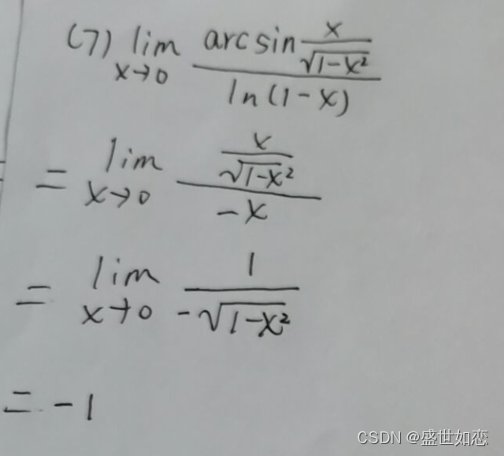 (7) lim x→0 arcsin x/√(1-x²) / ln(1-x)
= lim x→0 x/√(1-x²) / -x
= lim x→0 1 / -√(1-x²)
= -1
CSDN @盛世如恋